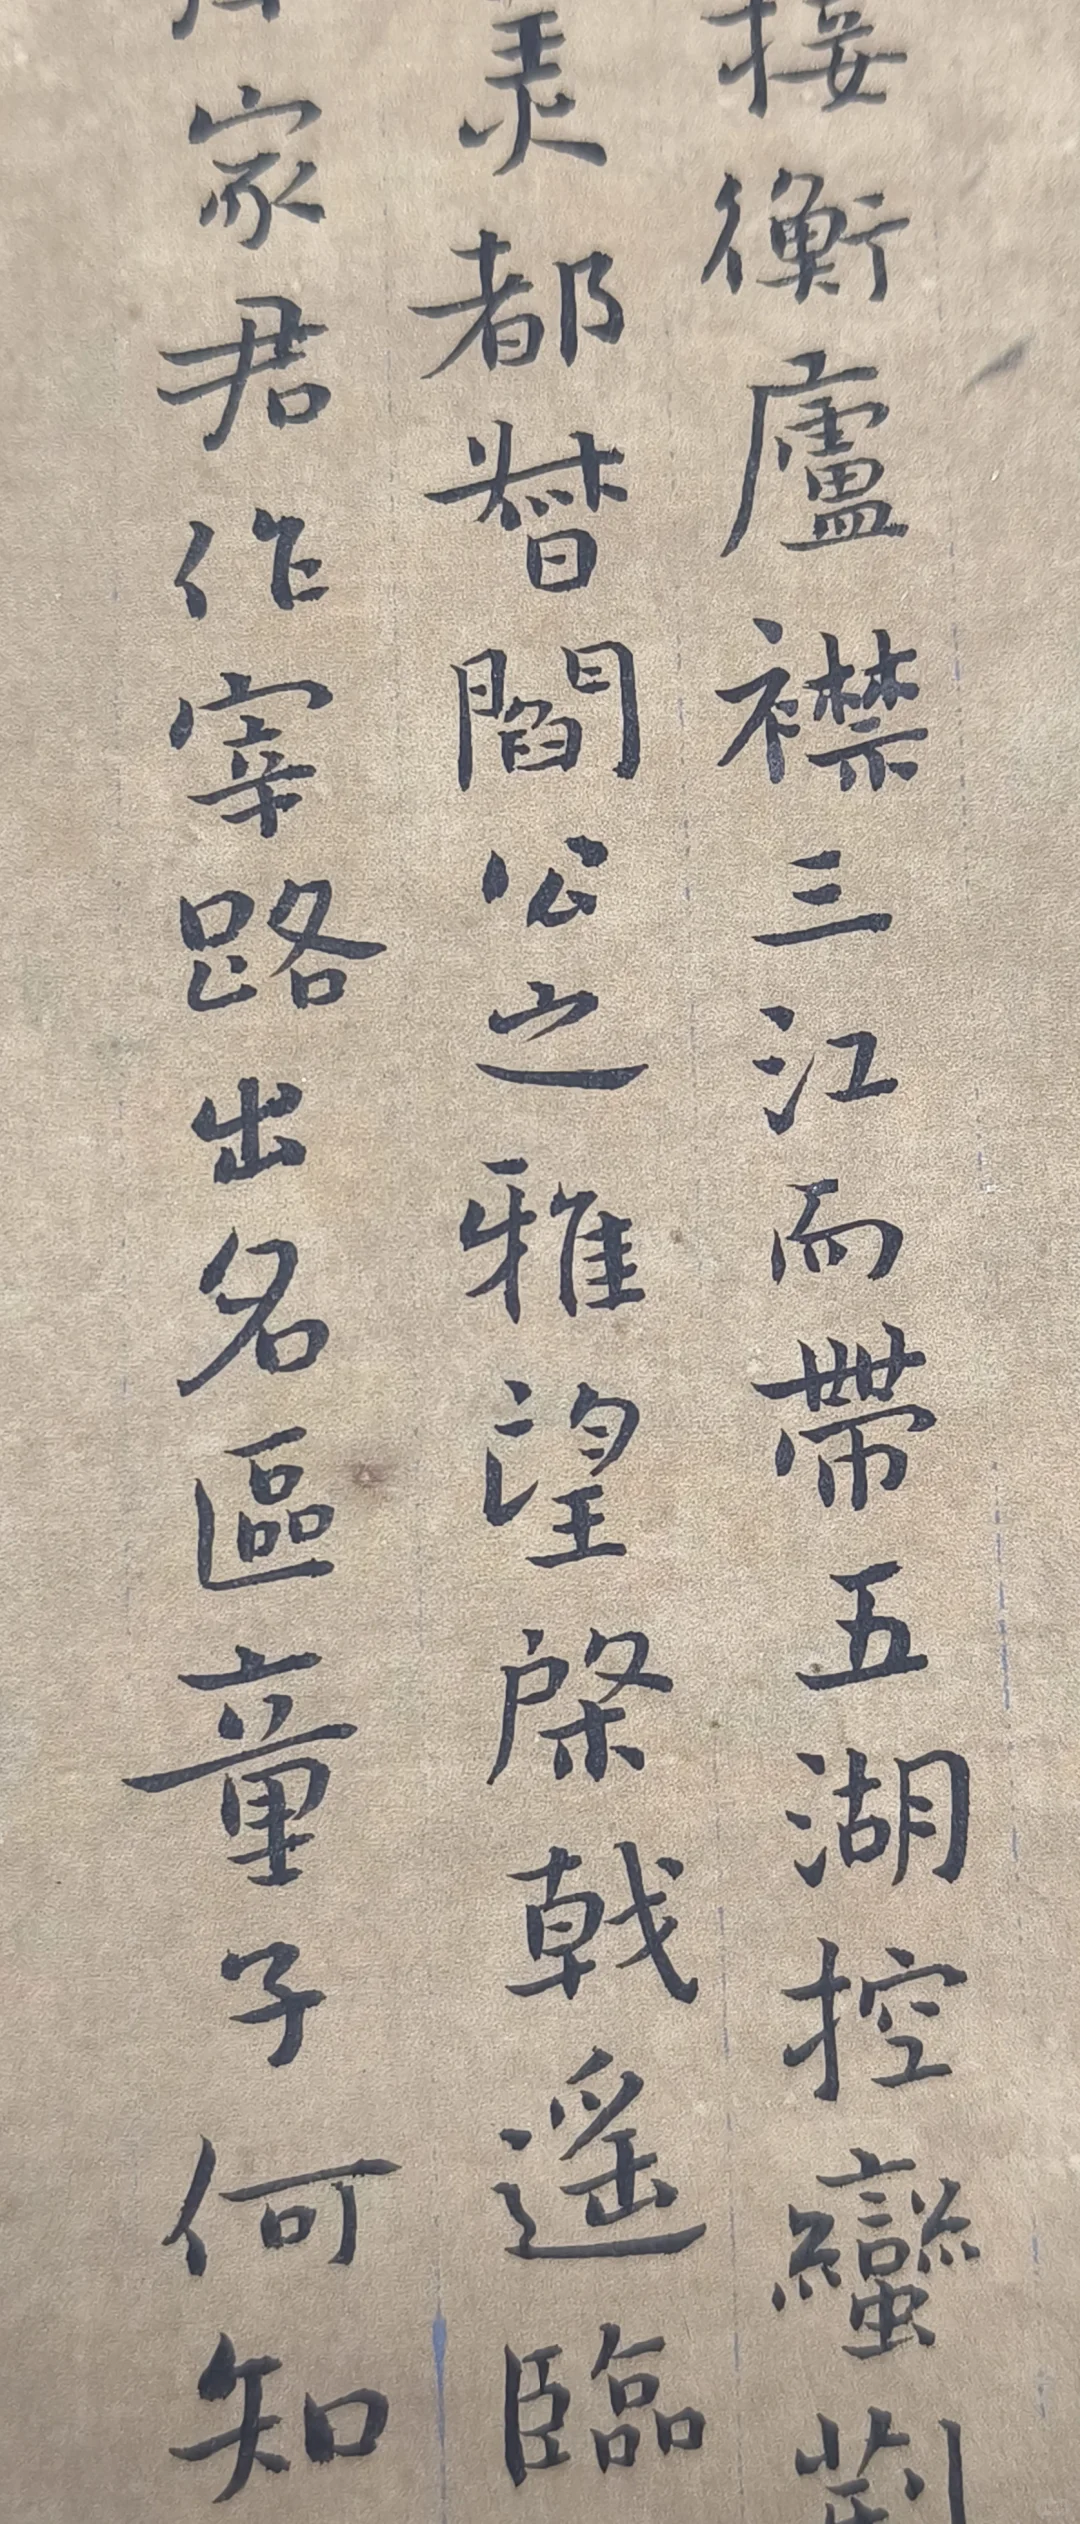 接衡廬襟三江而帶五湖控蠻荆
美都督閻公之雅望棨戟遙臨
家君作宰路出名區童子何知